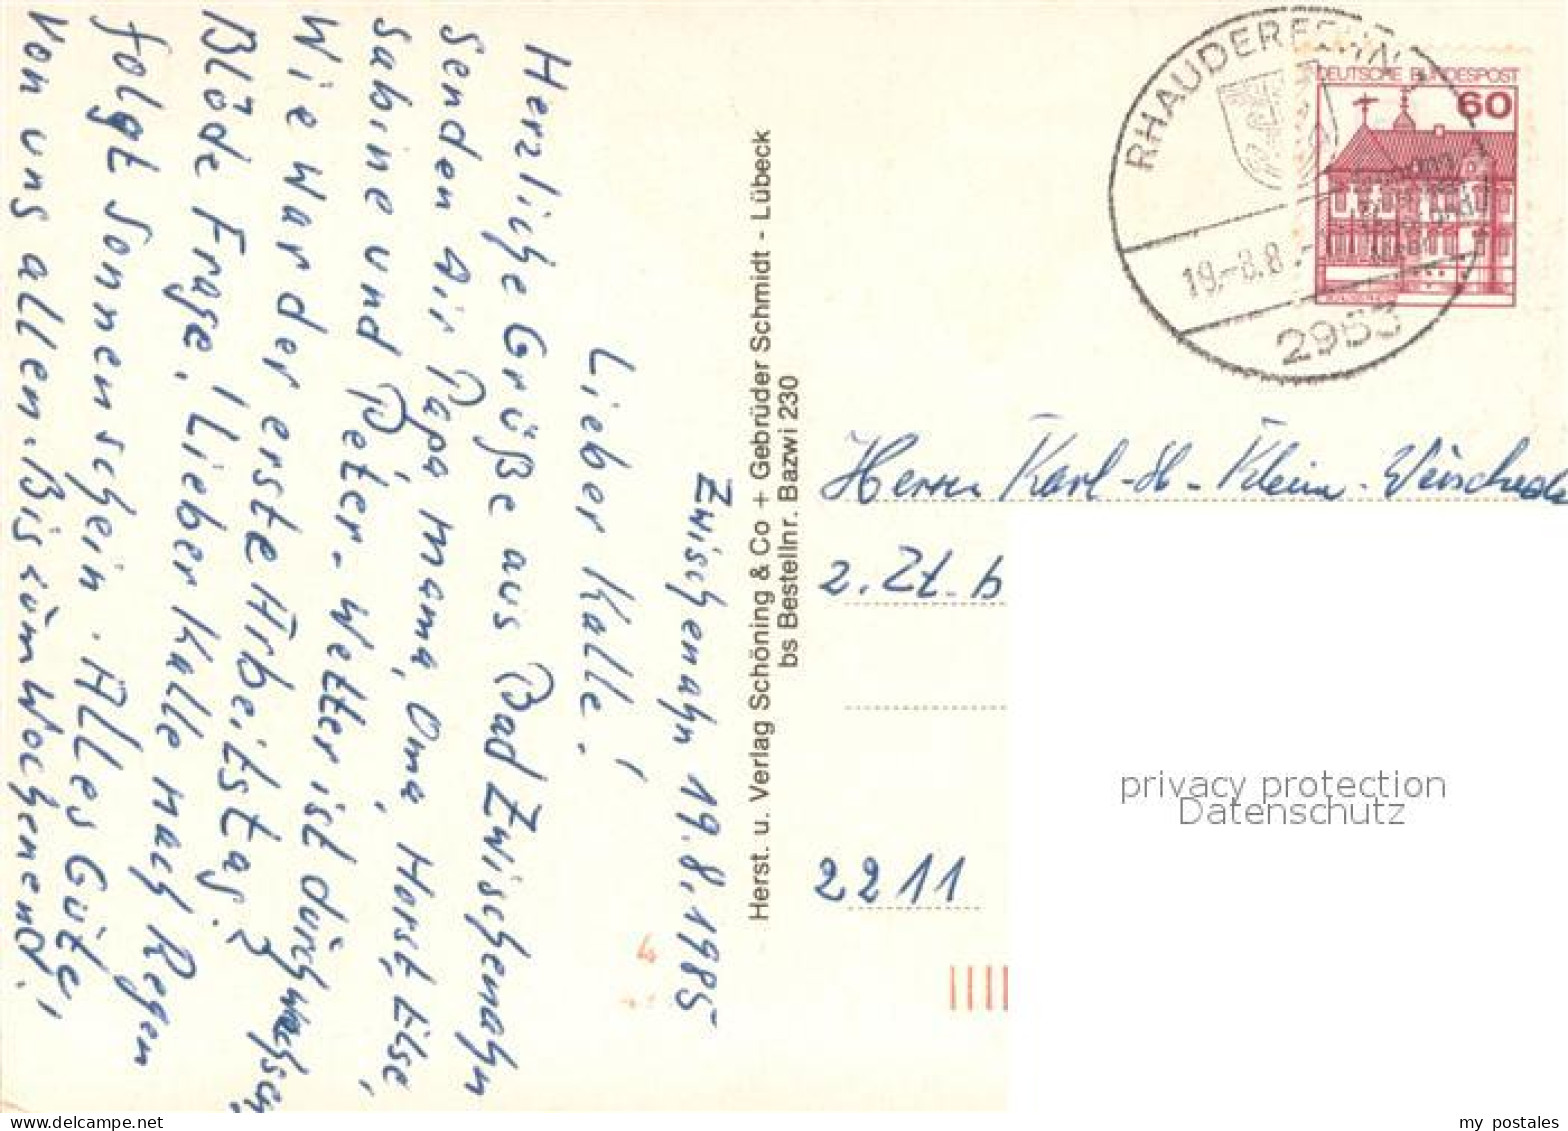 Zwischenahn 19.8.1985
Lieber Kalle!
Herzliche Grüße aus Bad Zwischenahn
Senden Dir Papa, mama, Oma, Horst, Else,
Sabine und Peter. Wetter ist durchwachsen,
Wie war der erste Arbeitstag?
Blöde Frage! Lieber Kalle nach Regen
folgt Sonnenschein. Alles Güte,
Von uns allen. Bis zum Wochenend!
Herst. u. Verlag Schöning & Co + Gebrüder Schmidt - Lübeck
bs Bestellnr. Bazwi 230
RHAUDERFEHN
19.-8.8
DEUTSCHE BUNDESPOST
60
Herrn Karl-H. Klein-
z. Zt. b
2211
privacy protection
Datenschutz
my postales